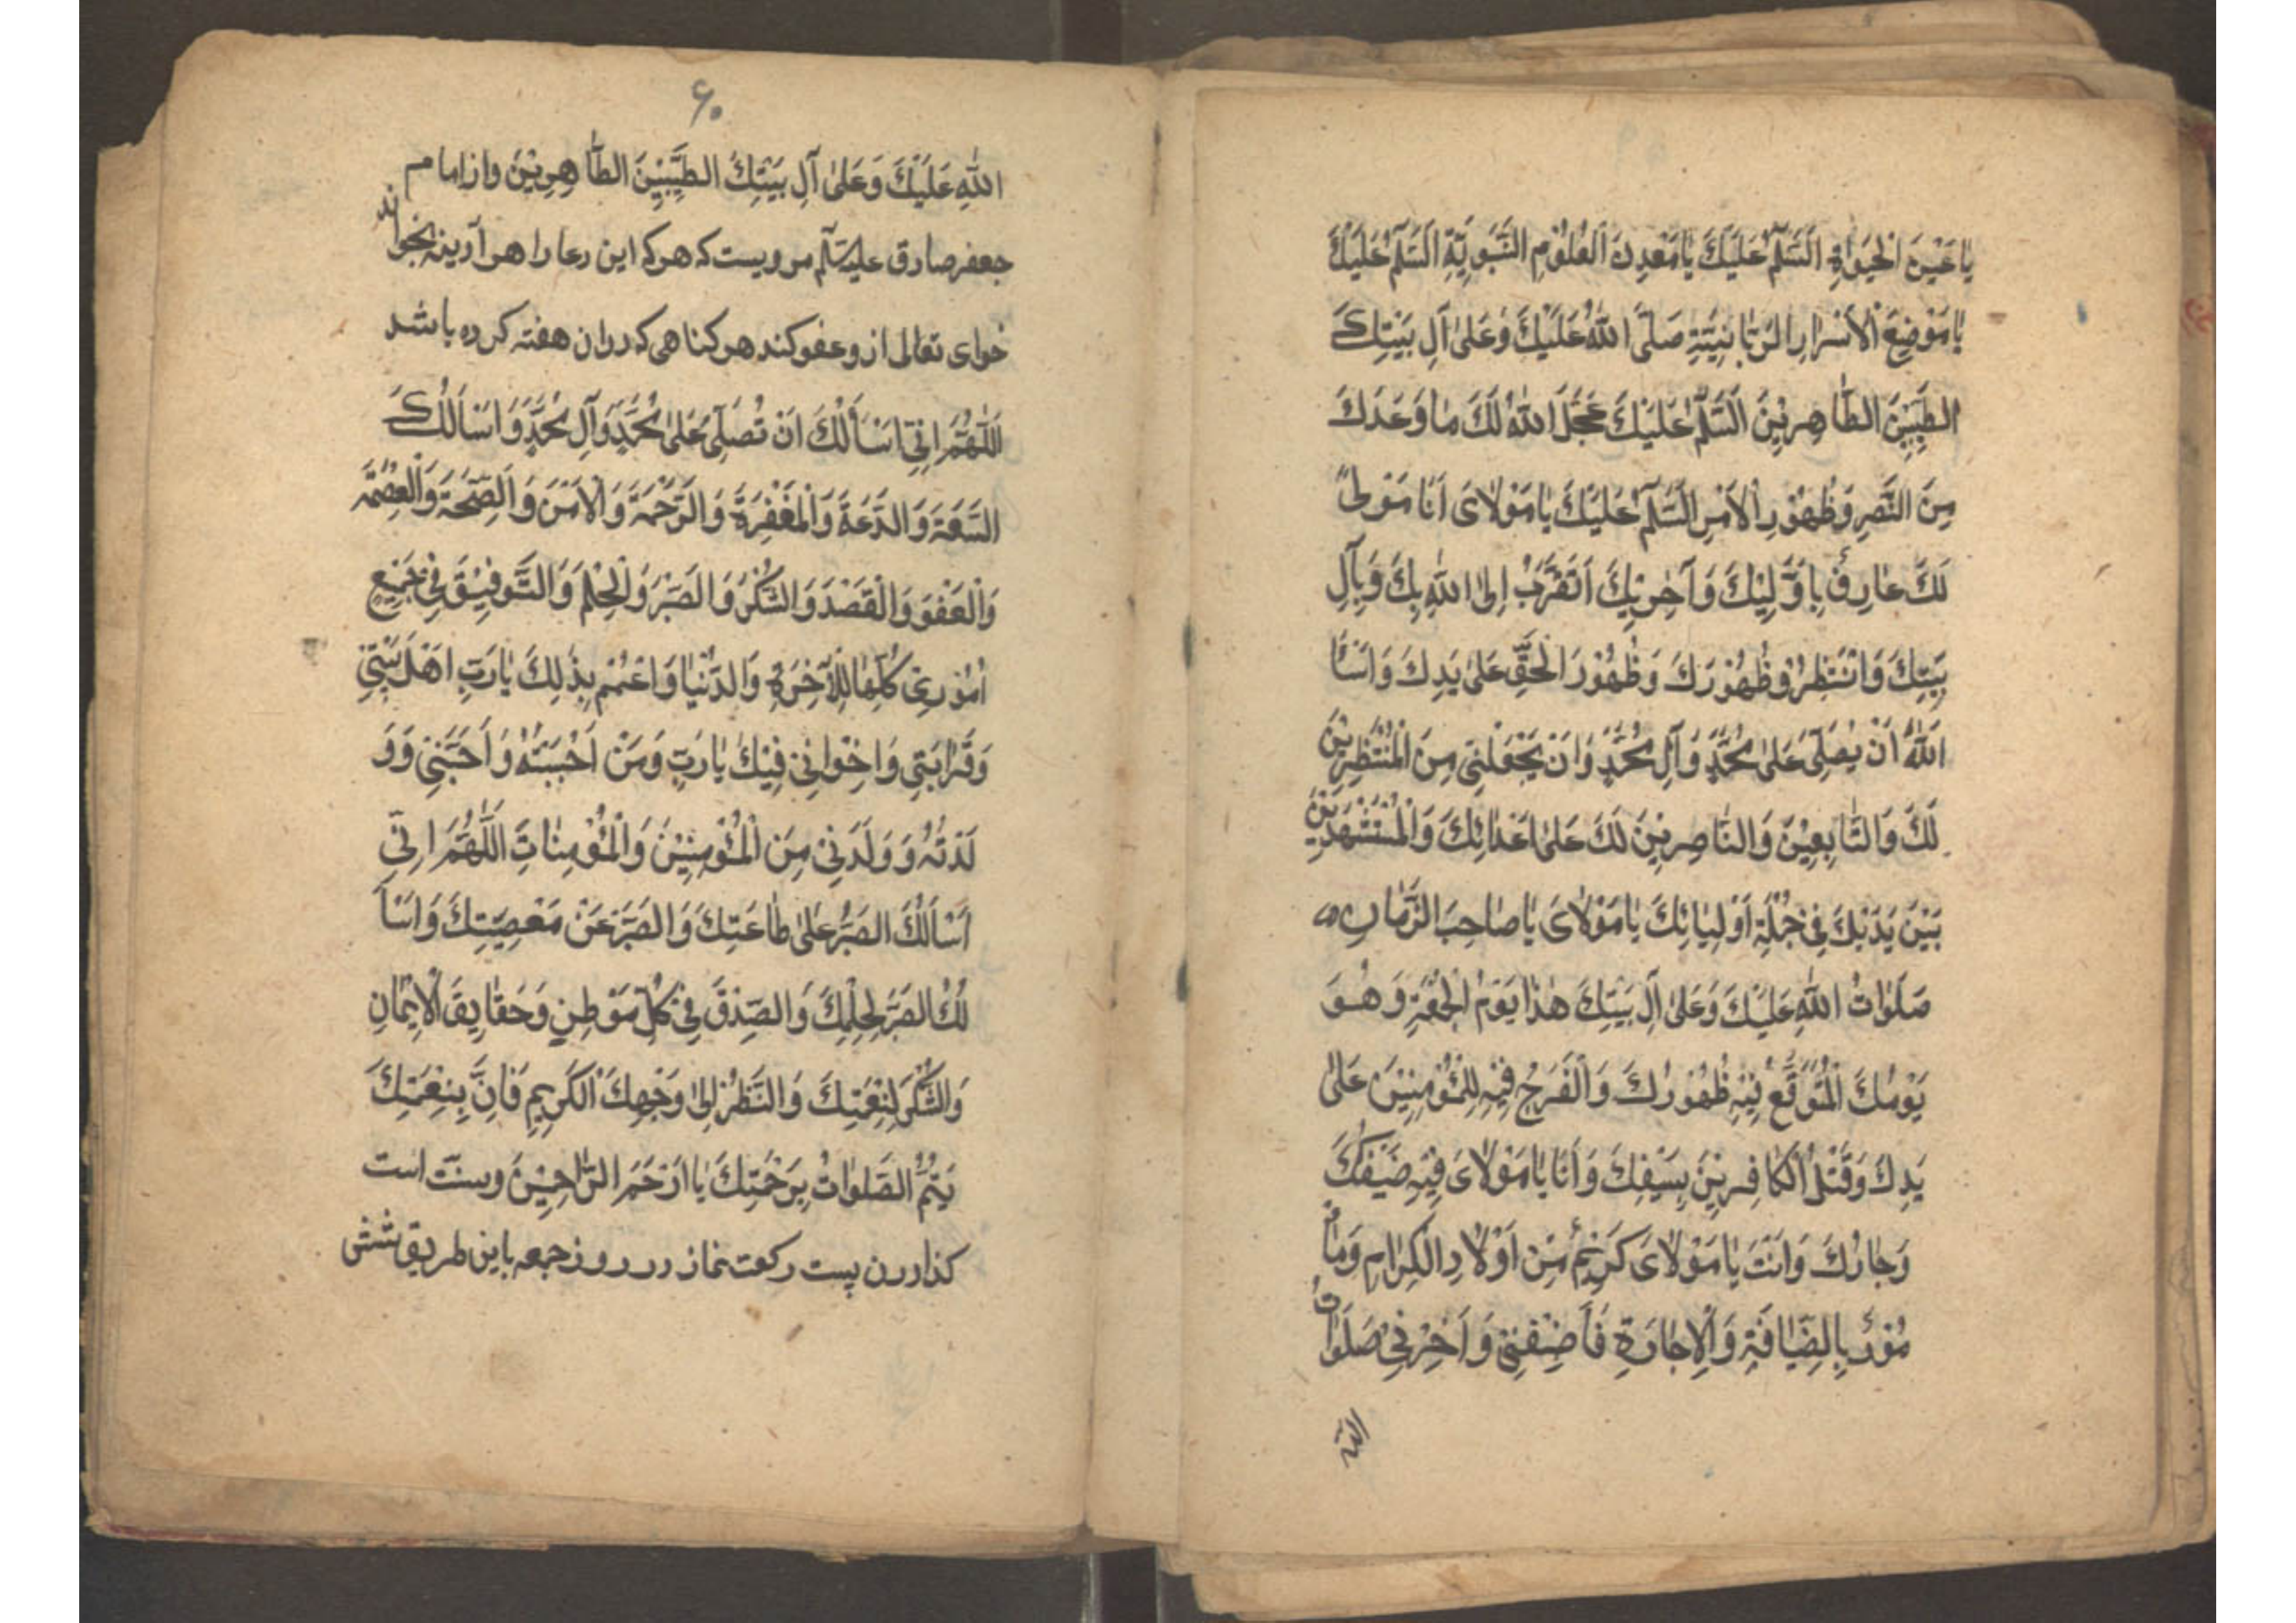 يا عَيْنَ الْحَيٰوةِ اَلسَّلٰمُ عَلَيْكَ يٰا مَعْدِنَ الْعُلُوْمِ النَّبَوِيَّةِ اَلسَّلٰمُ عَلَيْكَ
يٰا مَوْضِعَ الْاَسْرٰارِ الرَّبّٰانِيَّةِ صَلَّى اللهُ عَلَيْكَ وَعَلىٰ آلِ بَيْتِكَ
الطَّيِّبِيْنَ الطّٰاهِرِيْنَ اَلسَّلٰمُ عَلَيْكَ عَجَّلَ اللهُ لَكَ مٰا وَعَدَكَ
مِنَ النَّصْرِ وَظُهُوْرِ الْاَمْرِ اَلسَّلٰمُ عَلَيْكَ يٰا مَوْلاٰىَ اَنٰا مَوْلىً
لَكَ عٰارِفٌ بِاَوَّلِيْكَ وَآخِرِيْكَ اَتَقَرَّبُ اِلىَ اللهِ بِكَ وَبِآلِ
بَيْتِكَ وَاَنْتَظِرُ وظُهُوْرَكَ وَظُهُوْرَ الْحَقِّ عَلىٰ يَدِكَ وَاَسْأَلُ
اَللّٰهَ اَنْ يُصَلِّىَ عَلىٰ مُحَمَّدٍ وَآلِ مُحَمَّدٍ وَاَنْ يَجْعَلَنِىْ مِنَ الْمُنْتَظِرِيْنَ
لَكَ وَالتّٰابِعِيْنَ وَالنّٰاصِرِيْنَ لَكَ عَلىٰ اَعْدٰائِكَ وَالْمُسْتَشْهَدِيْنَ
بَيْنَ يَدَيْكَ فِىْ جُمْلَةِ اَوْلِيٰائِكَ يٰا مَوْلاٰىَ يٰا صٰاحِبَ الزَّمٰانِ
صَلَوٰاتُ اللهِ عَلَيْكَ وَعَلىٰ آلِ بَيْتِكَ هٰذٰا يَوْمُ الْجُمْعَةِ وَهُوَ
يَوْمُكَ الْمُتَوَقَّعُ فِيْهِ ظُهُوْرُكَ وَالْفَرَجُ فِيْهِ لِلْمُؤْمِنِيْنَ عَلىٰ
يَدِكَ وَقَتْلُ الْكٰافِرِيْنَ بِسَيْفِكَ وَاَنٰا يٰا مَوْلاٰىَ فِيْهِ ضَيْفُكَ
وَجٰارُكَ وَاَنْتَ يٰا مَوْلاٰىَ كَرِيْمٌ مِنْ اَوْلاٰدِ الْكِرٰامِ وَمٰأ
مُوْرٌ بِالضِّيٰافَةِ وَالْاِجٰارَةِ فَاَضِفْنِىْ وَاَجِرْنِىْ صَلَوٰاتُ
الله
۶۰
اللهِ عَلَيْكَ وَعَلىٰ آلِ بَيْتِكَ الطَّيِّبِيْنَ الطّٰاهِرِيْنَ واز امام
جعفر صادق عليه‌السّلم مرويست كه هر كه اين دعا را هر آدينه بخواند
خداى تعالى از و عفو كند هر كناهى كه در ان هفته كرده باشد
اَللّٰهُمَّ اِنِّىْ اَسْأَلُكَ اَنْ تُصَلِّىَ عَلىٰ مُحَمَّدٍ وَآلِ مُحَمَّدٍ وَاَسْأَلُكَ
السَّعَةَ وَالدَّعَةَ وَالْمَغْفِرَةَ وَالرَّحْمَةَ وَالْاَمْنَ وَالصِّحَّةَ وَالْعِصْمَةَ
وَالْعَفْوَ وَالْقَصْدَ وَالشُّكْرَ وَالصَّبْرَ وَالْحِلْمَ وَالتَّوْفِيْقَ فِىْ جَمِيْعِ
اُمُوْرِىْ كُلِّهٰا لِلْآخِرَةِ وَالدُّنْيٰا وَاعْمُمْ بِذٰلِكَ يٰا رَبِّ اَهْلَ بَيْتِىْ
وَقَرٰابَتِى وَاِخْوٰانِىْ فِيْكَ يٰا رَبِّ وَمَنْ اَحْبَبْتُهُ وَاَحَبَّنِىْ وَوَ
لَدْتُهُ وَوَلَدَنِىْ مِنَ الْمُؤْمِنِيْنَ وَالْمُؤْمِنٰاتِ اَللّٰهُمَّ اِنِّىْ
اَسْأَلُكَ الصَّبْرَ عَلىٰ طٰاعَتِكَ وَالصَّبْرَ عَنْ مَعْصِيَتِكَ وَاَسْأَ
لُكَ الصَّبْرَ لِحِلْمِكَ وَالصِّدْقَ فِىْ كُلِّ مَوْطِنٍ وَحَقٰايِقَ الْاِيْمٰانِ
وَالشُّكْرَ لِنِعْمَتِكَ وَالنَّظَرَ اِلىٰ وَجْهِكَ الْكَرِيمِ فَاِنَّ بِنِعْمَتِكَ
يَتِمُّ الصَّلَوٰاتُ بِرَحْمَتِكَ يٰا اَرْحَمَ الرّٰاحِمِيْنَ وسنّت است
كذاردن بيست ركعت نماز در روز جمعه باين طريق شش